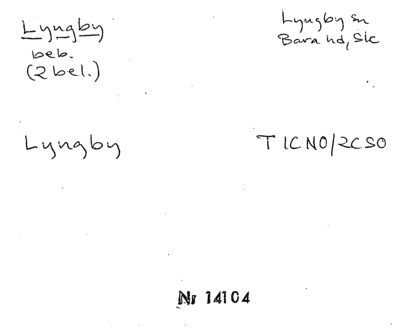 Lyngby
beb.
(2 bel.)
Lyngby sn
Bara hd, Sk
Lyngby
T 1C NO/2C SO
Nr 14104